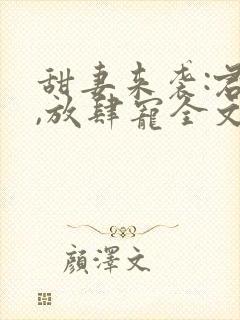 甜妻来袭:君
,放肆宠全文
顏澤文